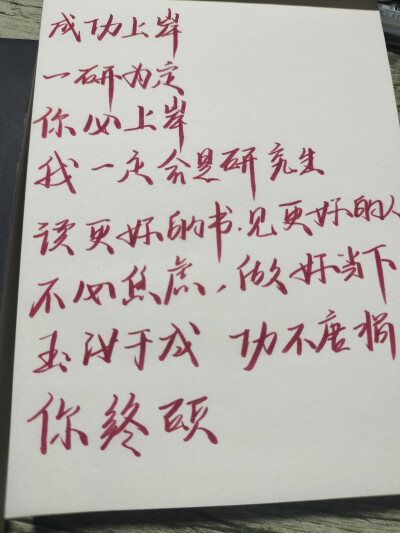 成功上岸
一研为定
你必上岸
我一定会是研究生
读更好的书.见更好的人
不必焦虑，做好当下
玉汝于成 功不唐捐
你终硕